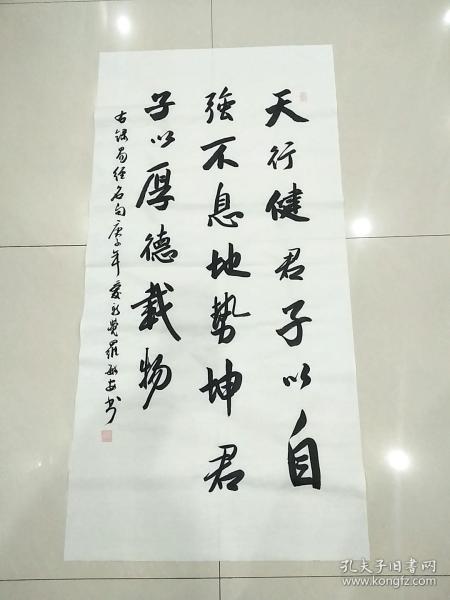 天行健君子以自
强不息地势坤君
子以厚德载物
右录易经名句庚子年爱新觉罗 书
孔夫子旧书网
www.kongfz.com